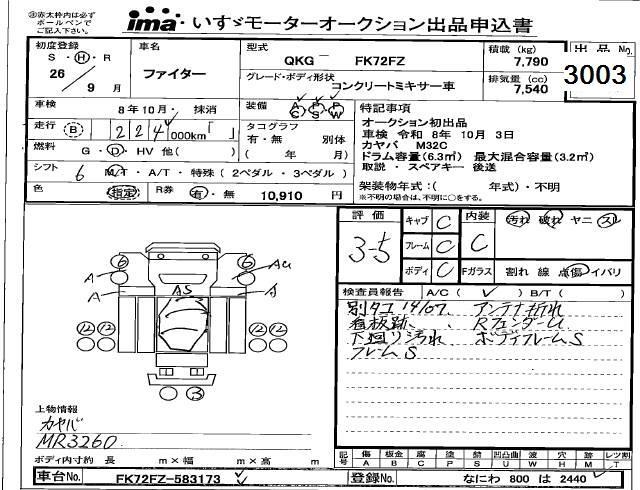 ㊟赤太枠内は必ず
ボールペンで
ご記入下さい。
ima いすゞモーターオークション出品申込書
初度登録
S・H・R
26 年 9 月
車名
ファイター
型式
QKG － FK72FZ
グレード・ボディ形状
コンクリートミキサー車
積載 (kg)
7,790
排気量 (cc)
7,540
出品 No.
3003
車検 8年10月・ 抹消
装備 A C P S P W
走行 B 224,000km「 」
タコグラフ
有・無 別体
( 年 月)
燃料 G・D・HV 他( )
シフト 6 M/T・A/T・特殊(2ペダル・3ペダル)
色 指定 R券 有・無 10,910 円
特記事項
オークション初出品
車検 令和 8年 10月 3日
カヤバ M32C
ドラム容量(6.3㎥) 最大混合容量(3.2㎥)
取説・スペアキー 後送
架装物年式:( 年式)・不明
※不明の場合は、不明に○をする。
評価 3-5
キャブ C
フレーム C
ボディ C
内装 C
汚れ 破れ ヤニ スレ
Fガラス 割れ 線 点傷 イバリ
検査員報告 A/C( ✓ ) B/T( )
別タコ 14/67 アンテナ折れ
看板跡、 RフェンダーU
下回り汚れ ボディフレームS
フレームS
6 6
A A
A AS A
12 12 12 12
3
上物情報
カヤバ
MR3260
ボディ内寸約 長 m×幅 m×高 m
記号 傷 A 板金 B 腐 C 塗 P サビ S 凹凸曲 U 波 W 穴 H メクレ M レツ割 T
車台No. FK72FZ-583173
登録No. なにわ 800 は 2440